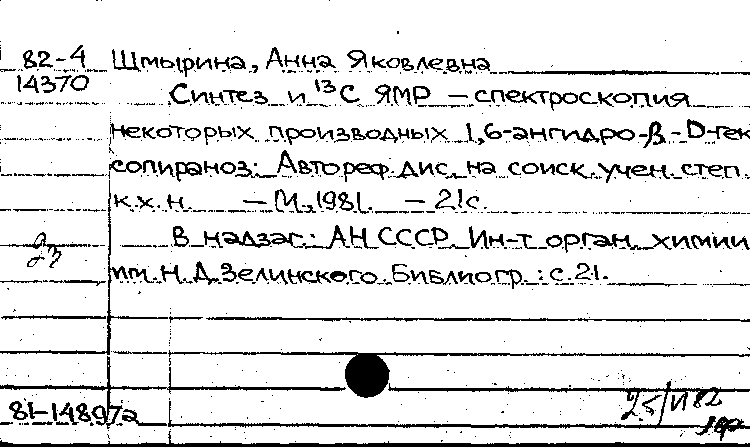 82-4 Шмырина, Анна Яковлевна
14370
Синтез и ¹³С ЯМР — спектроскопия
некоторых производных 1,6-ангидро-β-D-гек
сопираноз: Автореф. дис. на соиск. учен. степ.
к.х.н. — М., 1981. — 21с.
В надзаг.: АН СССР. Ин-т орган. химии
им. Н.Д. Зелинского. Библиогр.: с.21.
81-14897а